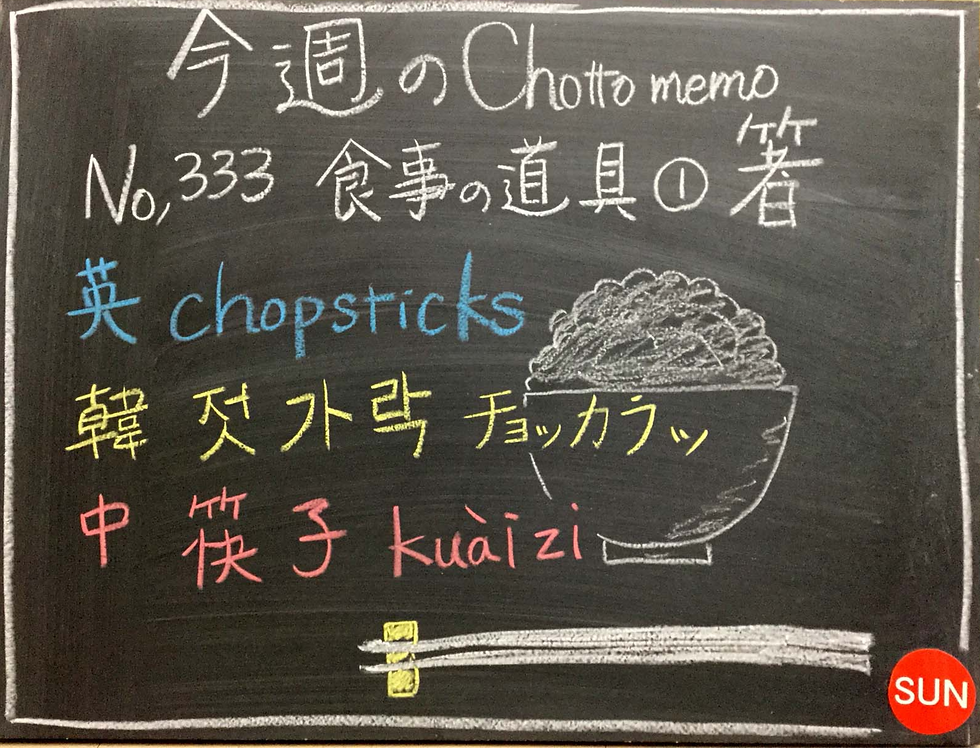 今週のChotto memo
No,333 食事の道具① 箸
英 chopsticks
韓 젓가락 チョッカラッ
中 筷子 kuàizi
SUN